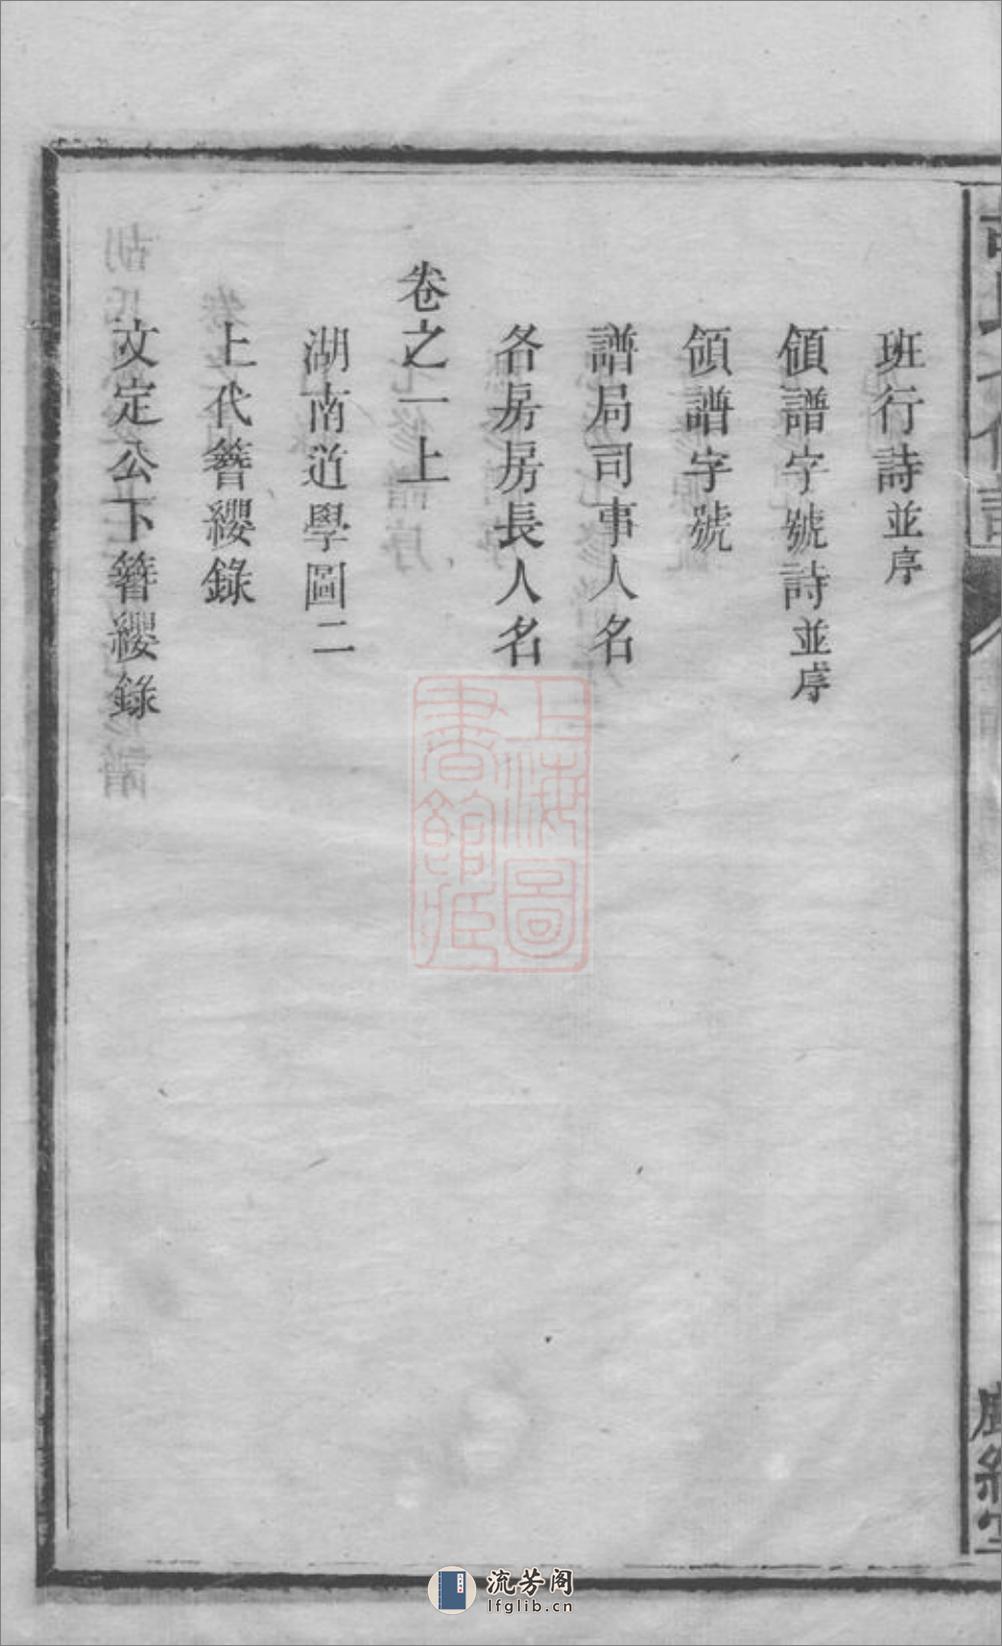 班行詩並序
領譜字號詩並序
領譜字號
譜局司事人名
各房房長人名
卷之一上
湖南道學圖二
上代簪纓錄
文定公下簪纓錄
上海圖
書館藏
流芳阁
lfglib.cn